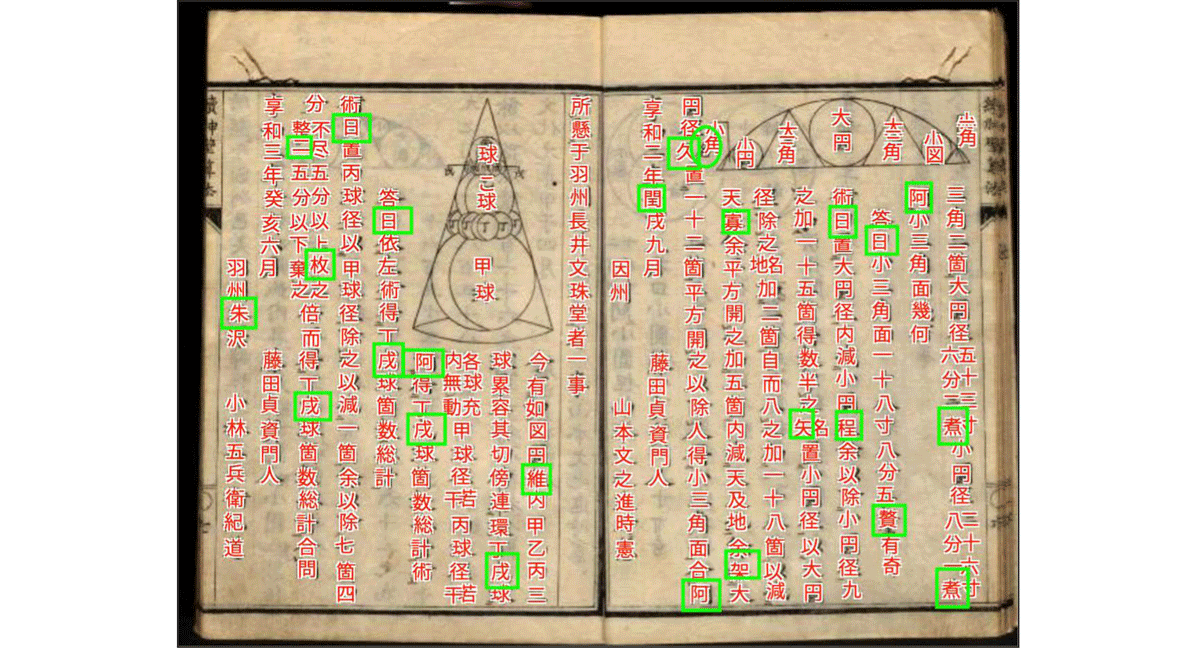 小角
小図
大三角
大円
大三角
小円
小角
三角二箇大円径五十三寸六分二煮小円径二十六寸八分一煮
阿小三角面幾何
答日小三角面一十八寸八分五贅有奇
術日置大円径内減小円程余以除小円径九
之加一十五箇得数半之矢名置小円径以大円
径除之地名加二箇自而八之加一十八箇以減
天寡余平方開之加五箇内減天及地余架大
円径久置一十二箇平方開之以除人得小三角面合阿
享和二年閏戌九月 藤田貞資門人
因州 山本文之進時憲
所懸于羽州長井文珠堂者一事
球
こ球
甲球
今有如図円維内甲乙丙三
球累容其切傍連環丁戌球
各球充内無動甲球径若干丙球径若干
阿得丁戌球箇数総計術
答日依左術得丁戌球箇数総計
術日置丙球径以甲球径除之以減一箇余以除七箇四
分不尽五分以上枚之整二五分以下棄之倍而得丁戌球箇数総計合問
享和三年癸亥六月 藤田貞資門人
羽州朱沢 小林五兵衛紀道